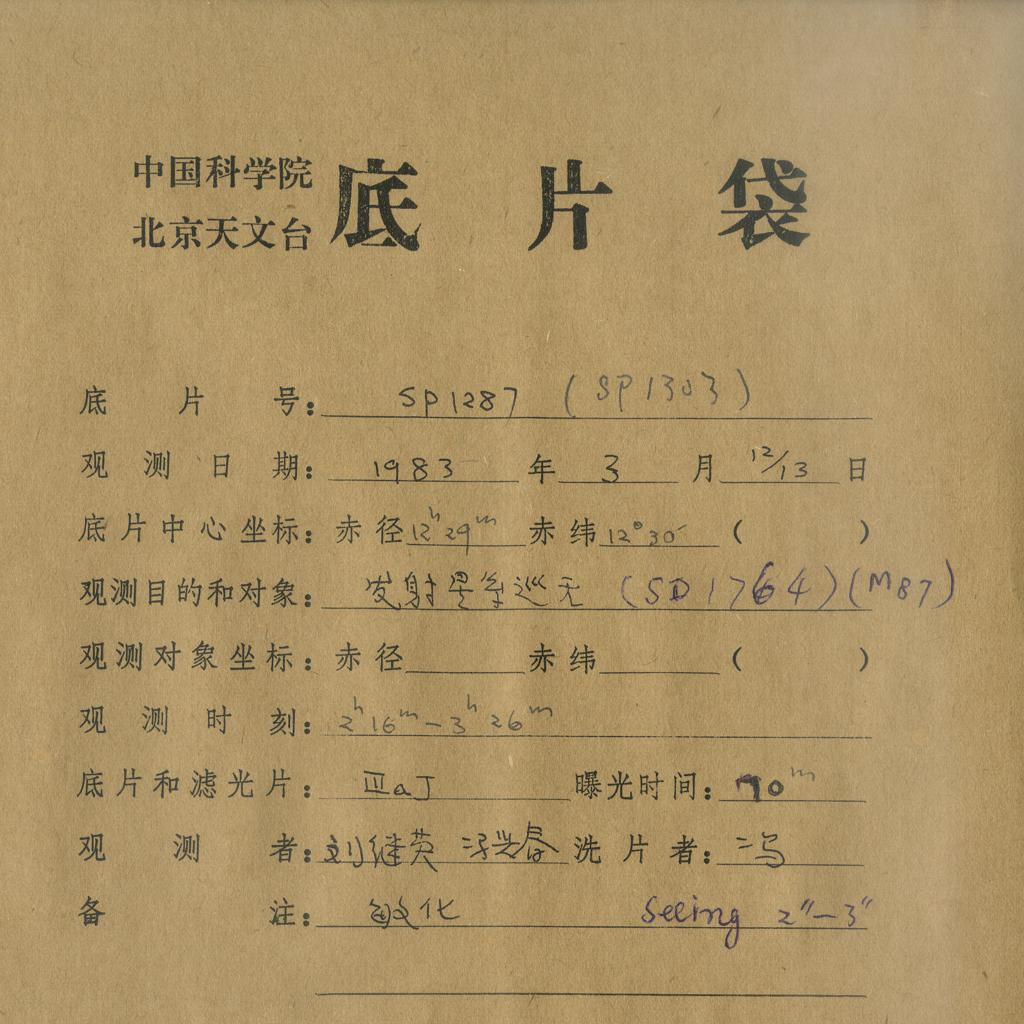 中国科学院
北京天文台
底片袋
底片号: SP1287 (SP1303)
观测日期: 1983 年 3 月 12/13 日
底片中心坐标: 赤径 12ʰ29ᵐ 赤纬 12°30′ ( )
观测目的和对象: 发射星系巡天 (SD1764) (M87)
观测对象坐标: 赤径 赤纬 ( )
观测时刻: 2ʰ16ᵐ—3ʰ26ᵐ
底片和滤光片: ⅢaJ 曝光时间: 70ᵐ
观测者: 刘继英 洗片者: 冯
备注: 敏化 Seeing 2″—3″